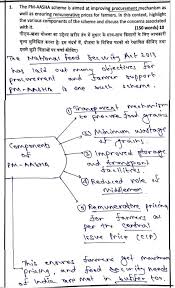 1. The PM-AASHA scheme is aimed at improving procurement mechanism as
well as ensuring remunerative prices for farmers. In this context, highlight
the various components of the scheme and discuss the concerns associated
with it. (150 words) 10
The National Food Security Act 2013
has laid out many objectives for
procurement and farmer support
PM-AASHA is one such scheme.
Components
of
PM-AASHA
① Transparent mechanism
to procure food grains
② Minimum wastage
of grains
③ Improved storage
and transport
facilities
④ Reduced role of
Middleman
⑤ Remunerative pricing
for farmers as
per the Central
Issue Price (CIP)
This ensures farmers get maximum
pricing and food security needs
of India are met in